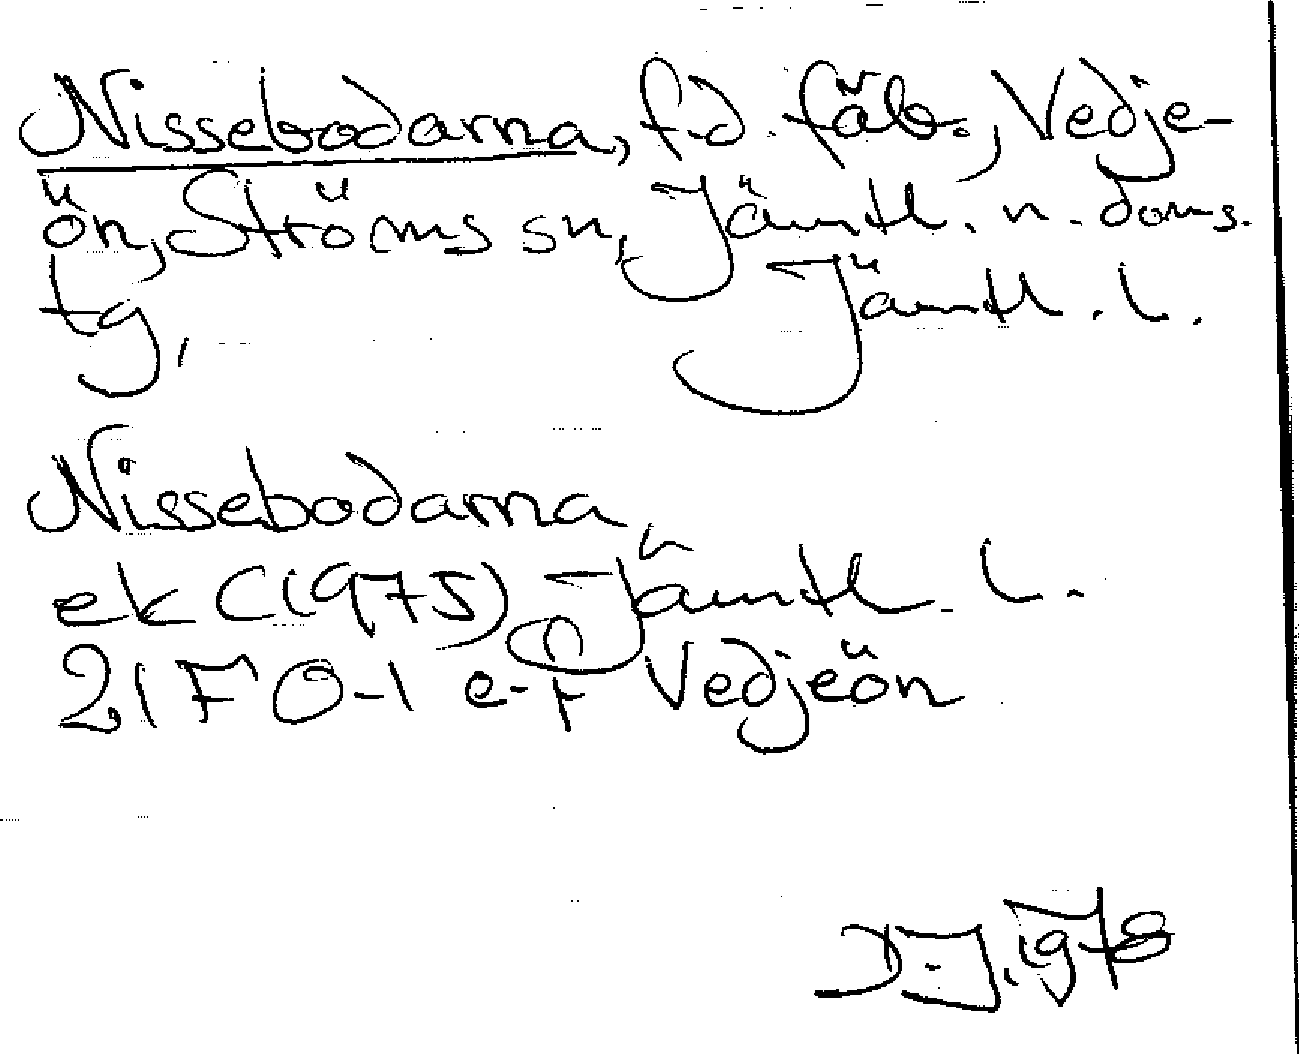 Nissebodarna, f.d. fäb., Vedje-
ön, Ströms sn, Jämtl. n. doms.
tg, Jämtl. l.
Nissebodarna
ek (1975) Jämtl. l.
21F 0-1 e-f Vedjeön
D.J. 1978